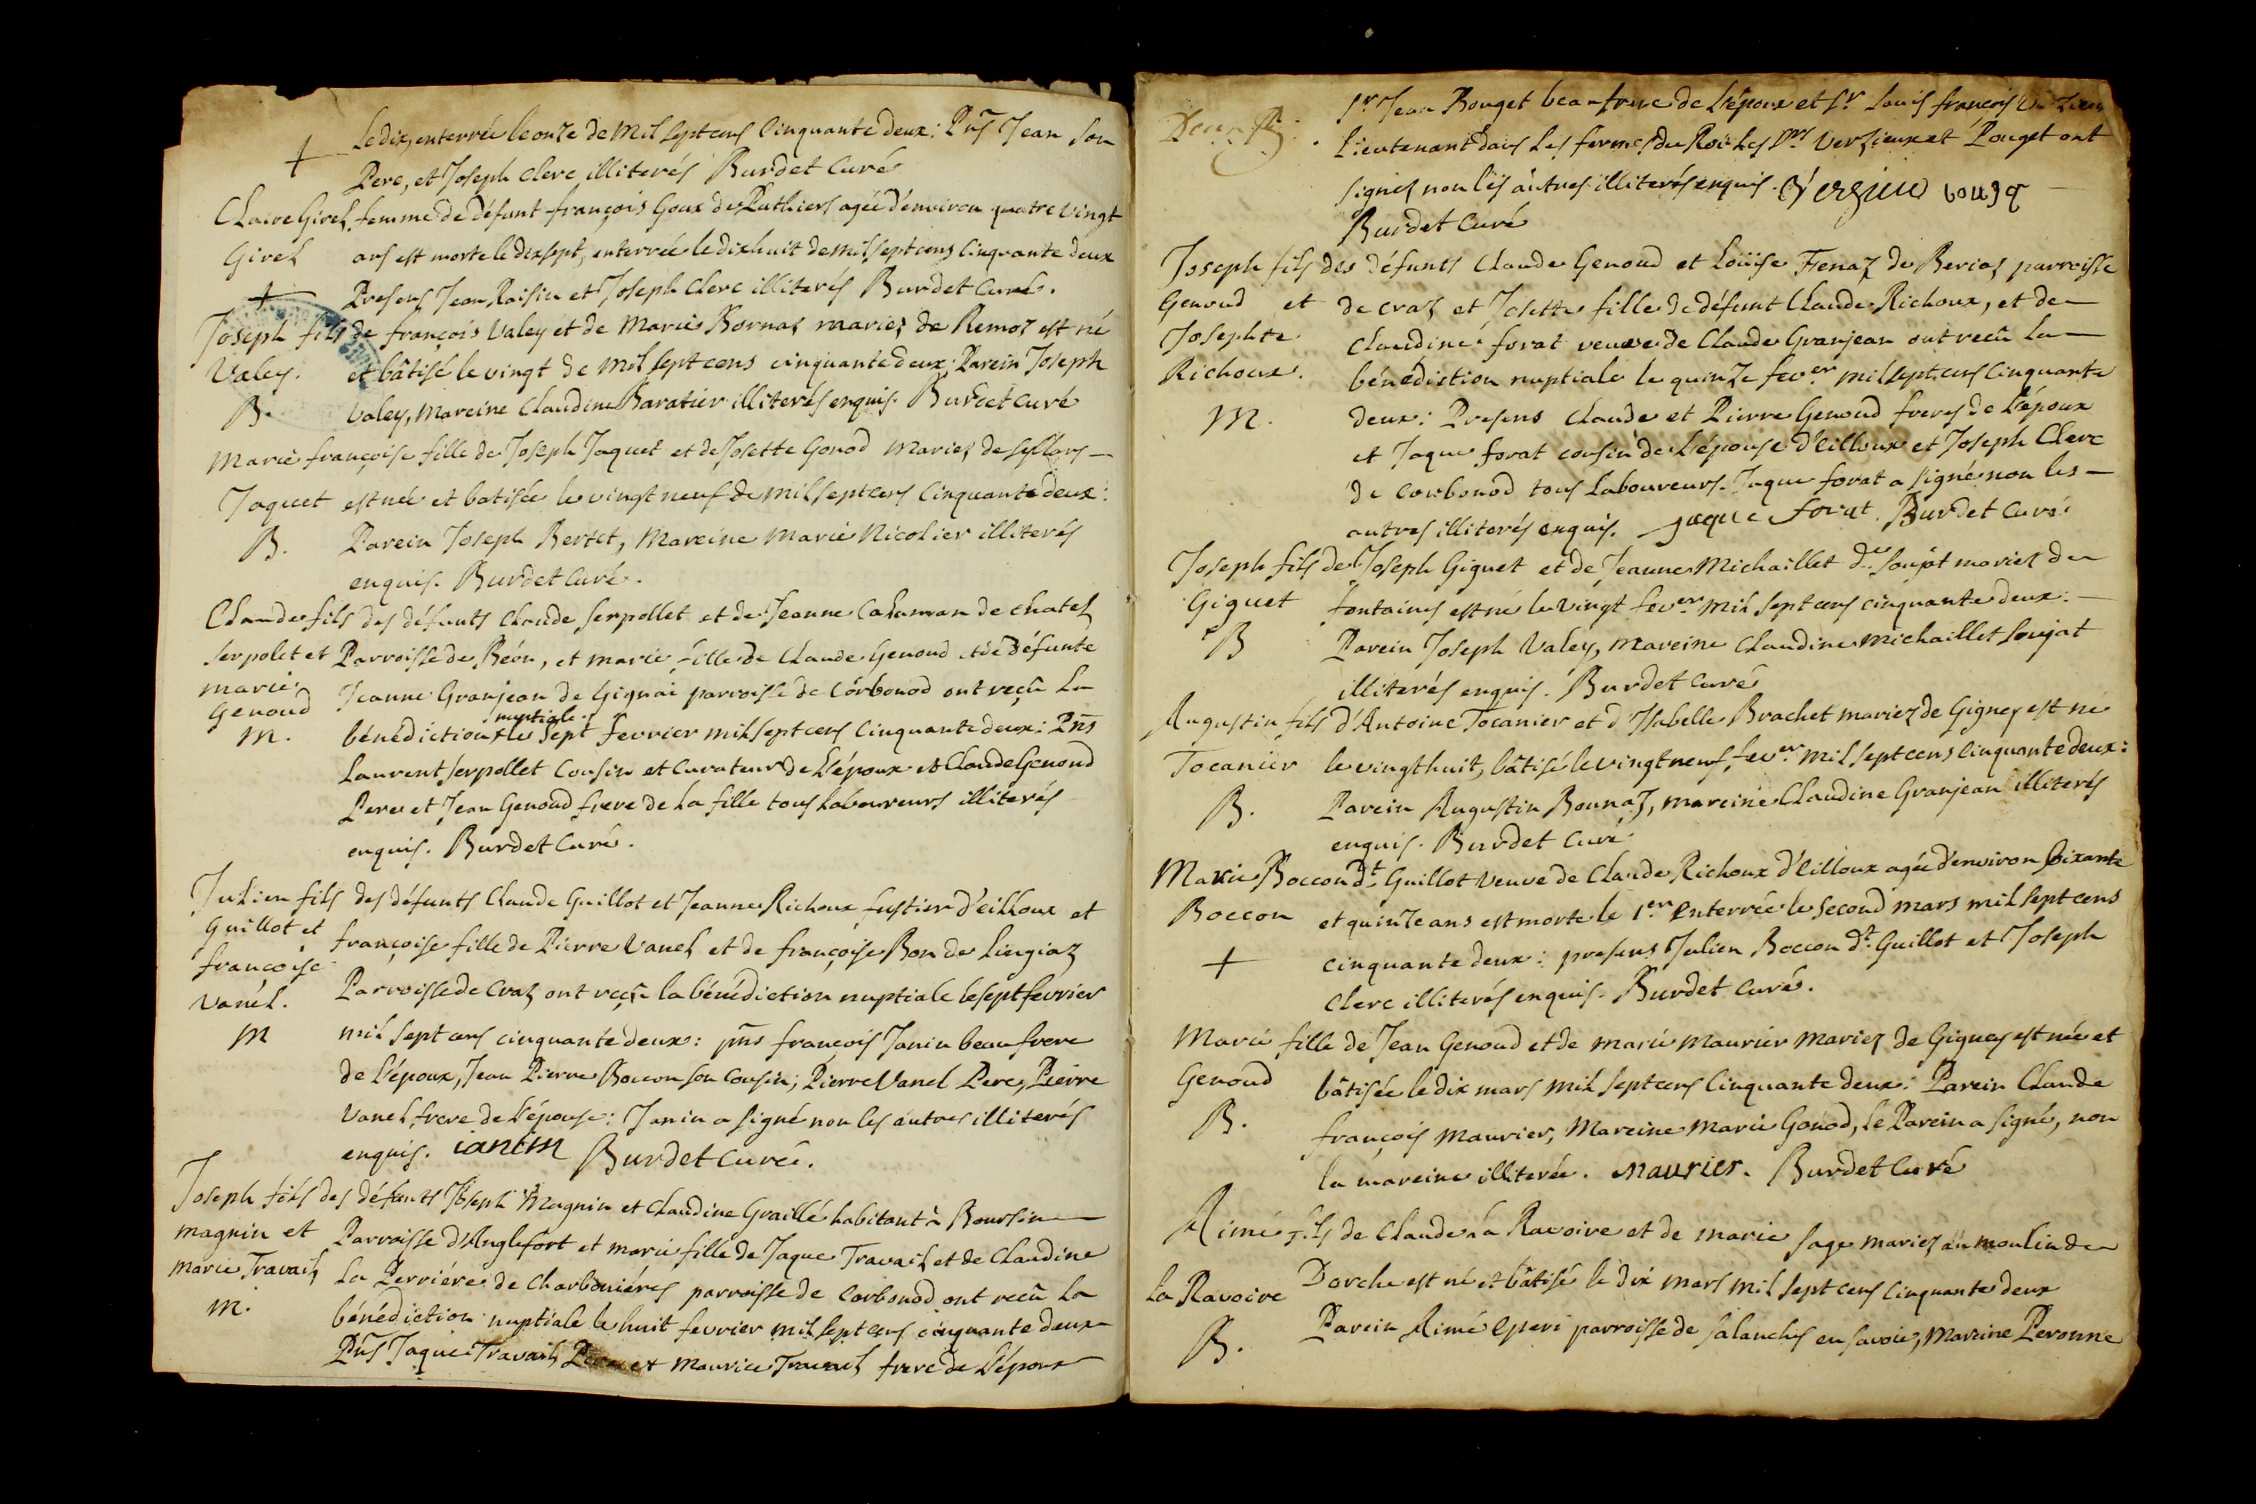 Le dix, enterrée le onze de mil sept cens cinquante deux: Pns Jean son
+
Pere, et Joseph Clerc illiterés Burdet Curé
Claire Girel femme de défunt françois Goux de Puthiers agée d'environ quatre vingt
Girel ans est morte le dixsept, enterrée le dixhuit de mil sept cens cinquante deux
+ Presens Jean Raisin et Joseph Clerc illiterés Burdet Curé.
Joseph fils de françois Valey et de Marie Bornaz mariez de Remoz est né
Valey. et bâtisé le vingt de mil sept cens cinquante deux; Parein Joseph
B. Valey, Mareine Claudine Baratier illiterés enquis. Burdet Curé
Marie françoise fille de Joseph Jaquet et de Josette Gonod Mariez de Syllans
Jaquet est née et batisée le vingt neuf de mil sept cens Cinquante deux:
B. Parein Joseph Bertet, Mareine Marie Nicolier illiterés
enquis. Burdet Curé.
Claude fils des défunts Claude Serpollet et de Jeanne Caluman de Chatel
Serpolet et Parroisse de Béon, et marie fille de Claude Genoud et de Défunte
marie Jeanne Granjean de Gignai parroisse de Corbonod ont reçû la
Genoud
nuptiale
m. bénédiction le sept fevrier mil sept cens Cinquante deux: Pns
Laurent Serpollet Cousin et Curateur de l'époux et Claude Genoud
Pere et Jean Genoud frere de la fille tous Laboureurs illiterés
enquis. Burdet Curé.
Julien fils des défunts Claude Guillot et Jeanne Richoux fustier d'eilloux et
Guillot et françoise fille de Pierre Vanel et de françoise Bon de Lingiaz
françoise
Vanel. Parroisse de Craz ont reçû la bénédiction nuptiale le sept fevrier
m mil sept cens cinquante deux: pns françois Janin beau frere
de l'époux, Jean Pierre Boccon son Cousin; Pierre Vanel Pere, Pierre
Vanel frere de l'épouse: Janin a signé non les autres illiterés
enquis. ianin Burdet Curé.
Joseph fils des défunts Joseph Magnin et Claudine Graillé habitant à Boursin
magnin et Parroisse d'Anglefort et marie fille de Jaque Travail et de Claudine
Marie Travail La Perriére de Charbonières parroisse de Corbonod ont reçû la
m. bénédiction nuptiale le huit fevrier mil sept cens cinquante deux
Pns Jaque Travail Pere et Maurice Travail frere de l'épouse
Sr Jean Bouget beau frere de l'époux et Sr Louis françois
Lieutenant dans les fermes du Roi Les Srs Verzieux et Pouget ont
signez non les autres illiterés enquis.
Burdet Curé
Joseph fils des défunts Claude Genoud et Loüise Fenaz de Beriaz parroisse
Genoud et de Craz et Josette fille de défunt Claude Richoux, et de
Josephte Claudine forat veuve de Claude Granjean ont reçû la
Richoux. bénédiction nuptiale le quinze fever mil sept cens Cinquante
M. deux: Presens Claude et Pierre Genoud freres de l'époux
et Jaque forat cousin de l'épouse d'eilloux et Joseph Clerc
de Corbonod tous Laboureurs. Jaque forat a signé non les
autres illiterés enquis. jaque forat Burdet Curé
Joseph fils de Joseph Giguet et de Jeanne Michaillet de Soujat mariez de
Giguet fontaines est né le vingt fever mil sept cens cinquante deux:
B Parein Joseph Valey, mareine Claudine Michaillet Soujat
illiterés enquis. Burdet Curé
Augustin fils d'Antoine Tocanier et d'Isabelle Brachet mariez de Gigney est né
Tocanier le vingthuit, bâtisé le vingt neuf fever mil sept cens cinquante deux:
B. Parein Augustin Bonnaz, mareine Claudine Granjean illiterés
enquis. Burdet Curé
Marie Boccon dt Guillot Veuve de Claude Richoux d'eilloux agée d'environ soixante
Boccon et quinze ans est morte le 1er enterrée le second mars mil sept cens
+ cinquante deux: presens Julien Boccon dt Guillot et Joseph
Clerc illiterés enquis. Burdet Curé.
Marie fille de Jean Genoud et de Marie Maurier Mariez de Gignez est née et
Genoud bâtisée le dix mars mil sept cens Cinquante deux: Parein Claude
B. françois Maurier, Mareine Marie Gonod, le Parein a signé, non
la mareine illiterée. Maurier. Burdet Curé
Aimé fils de Claude la Ravoire et de Marie Sage Mariez au moulin de
La Ravoire Dorche est né et bâtisé le dix mars mil sept cens cinquante deux
B. Parein Aimé Eperi parroisse de Salanches en Savoie, Mareine Peronne